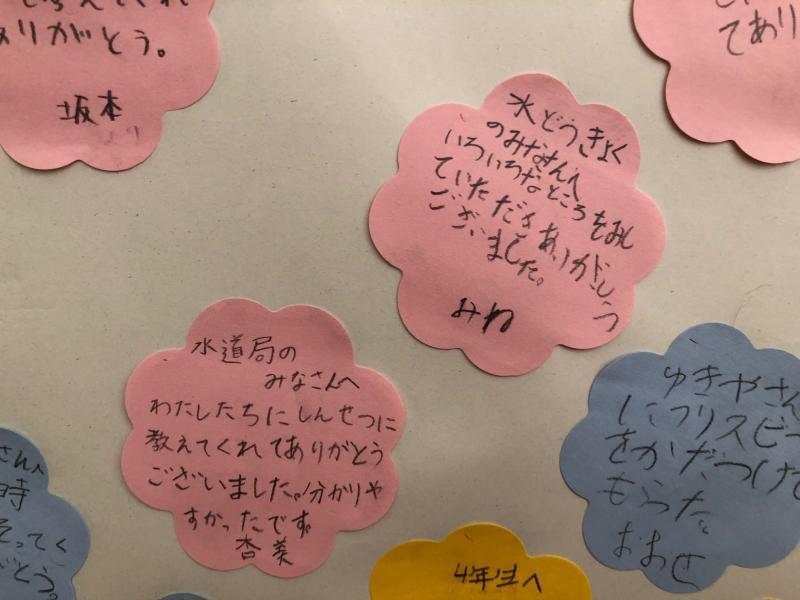 ありがとう。
坂本
てあり
水どうきょく
のみなさんへ
いろいろなところをみし
ていただきありがとう
ございました。
みね
水道局の
みなさんへ
わたしたちにしんせつに
教えてくれてありがとう
ございました。分かりや
すかったです。
杏美
ゆきやさん
にフリスビー
をかたづけて
もらった。
おおせ
さんへ
時
そってく
がとう。
4年生へ